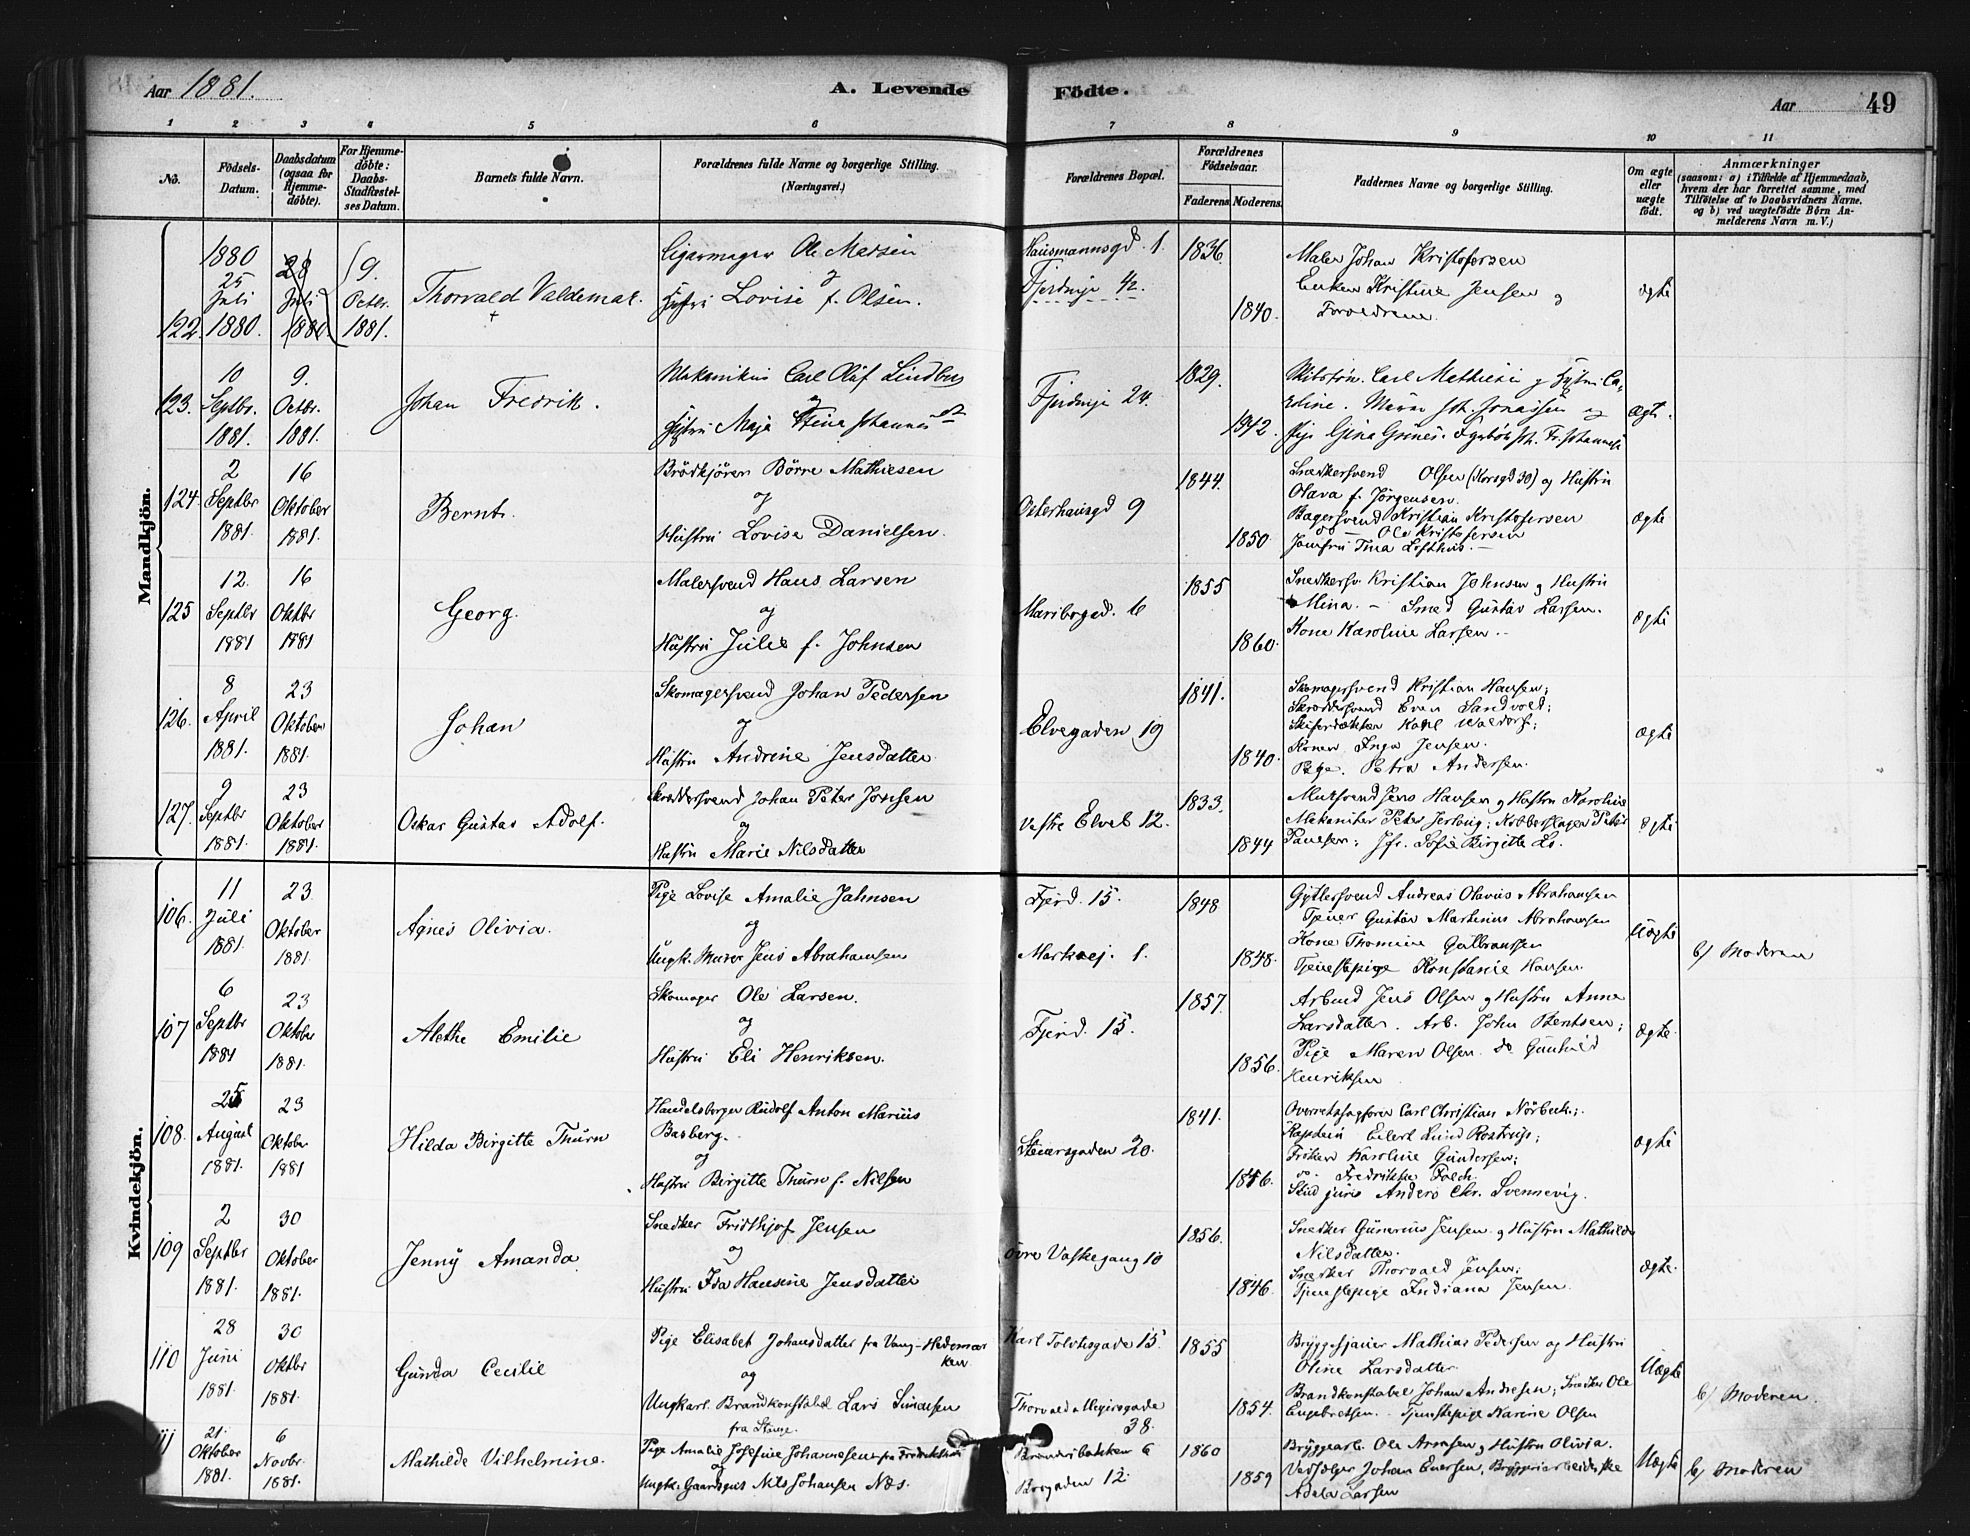 Aar 1881.
A. Levende
Födte.
Aar
49
1 2 3 4 5 6 7 8 9 10 11
No.
Födsels-Datum.
Daabsdatum (ogsaa for Hjemme-döbte).
For Hjemme-döbte: Daabs-Stadfæstel-ses Datum.
Barnets fulde Navn.
Forældrenes fulde Navne og borgerlige Stilling.
(Næringsvei.)
Forældrenes Bopæl.
Forældrenes Födselsaar.
Faderens Moderens
Faddernes Navne og borgerlige Stilling.
Om ægte eller uægte födt.
Anmærkninger
(saasom: a) i Tilfælde af Hjemmedaab,
hvem der har forrettet samme, med
Tilföielse af to Daabsvidners Navne.
og b) ved uægtefödte Börn An-
melderens Navn m.V.)
Mandkjön.
122. 1880 25 Juli 1880.
28 Juli 1880.
9. Octbr. 1881.
Thorvald Valdemar.
Cigarmager Ole Madsen
og
Hustru Lovise f. Olsen.
Hausmannsgd. 1.
Fjerdingv. 42.
1836.
1840.
Maler Johan Kristofersen
Enken Kristine Jensen og
Forældrene.
ægte
123. 10 Septbr. 1881.
9. Octbr. 1881.
Johan Fredrik.
Mekanikus Carl Olaf Lindberg
og
Hustru Maja Stina Johannesdt
Fjerdingv. 24.
1829.
1842.
Carl Mathiesen og Hustru Ca-
roline.
ægte.
124. 2 Septbr 1881.
16 Oktober 1881.
Bernt.
Brödkjörer Börre Mathiesen
og
Hustru Lovise Danielsen.
Osterhausgd 9
1844.
1850.
Snedkersvend Olsen (Korsgd 30) og Hustru
Olava f. Jörgensen.
Bagersvend Kristian Kristofersen
do — Ole Kristofersen
Jomfru Tina Lofthus. —
ægte
125 12. Septbr 1881
16 Oktbr 1881
Georg.
Malersvend Hans Larsen
og
Hustru Julie f. Johnsen
Maribogad. 6
1855
1860.
Snedkersv. Kristian Johnsen og Hustru
Mina. – Smed Gustav Larsen.
Kone Karoline Larsen. –
ægte
126. 8 April 1881.
23 Oktober 1881.
Johan
Skomagersvend Johan Pedersen
og
Hustru Andrine Jensdatter
Elvegaden 19
1841.
1840.
Skomagersvend Kristian Hansen;
Skræddersvend Even Sandvold;
Skiferdækker Karl Waldorf;
Konen Inga Jensen.
Pige. Petra Andersen.
ægte
127. 9 Septbr 1881.
23 Oktober 1881.
Oskar Gustav Adolf.
Skræddersvend Johan Peter Jonsen
og
Hustru Marie Nilsdatter
Vestre Elveb 12.
1833.
1844
Mursvend Jens Hansen og Hustru Karoline
Mekaniker Peter; Kobberslager Peter
Paulsen; Jfr. Sofie Birgitte Lö.
ægte
Kvindekjön.
106. 11 Juli 1881.
23 Oktober 1881.
Agnes Olivia.
Pige Lovise Amalie Jahnsen
og
Ungk. Murer Jens Abrahamsen
Fjerd. 15.
Markvej. 1.
1848
1848.
Gjørtlersvend Andreas Olavus Abrahamsen
Tjener Gustav Martinius Abrahamsen
Kone Thomine Gulbranssen
Tjenestepige Konstanse Hansen.
Uægte
b) Moderen
107 6 Septbr 1881
23 Oktober 1881.
Alethe Emilie
Skomager Ole Larsen.
og
Hustru Eli Henriksen.
Fjerd. 15.
1857.
1856.
Arbmd Jens Olsen og Hustru Anne
Larsdatter. Arb. John Bentsen;
Pige Maren Olsen. do Gunhild
Henriksen
ægte.
108. 25 August 1881.
23 Oktober 1881
Hilda Birgitte Thurn
Handelsborger Rudolf Anton Marius
Basberg.
og
Hustru Birgitte Thurn f. Nilsen
Steensgaden 20.
1841.
1856.
Overretssagfører Carl Christian Nörbech;
Kaptein Eilert Lund Rostrup;
Fröken Karoline Gundersen;
do. Fredrikke Foldh
Stud juris Anders Chr. Svennevig.
ægte
109 2 Septbr 1881.
30 Oktober 1881.
Jenny Amanda
Snedker Fridthjof Jensen
og
Hustru Ida Hansine Jensdatter
Övre Vaskegang 10
1856.
1846.
Snedker Gunerius Jensen og Hustru Mathilde
Nilsdatter.
Snedker Thorvald Jensen;
Tjenestepige Indiana Jensen
ægte.
110 28 Juni 1881.
30 Oktbr 1881.
Gunda Cecilie
Pige Elisabet Johansdatter fra Vang – Hedemar
ken
og
Ungkarl. Brandkonstabel Lars Simensen
fra Stange.
Karl Toldtsgade 15.
Thorvald Meyersgade
38.
1855
1854.
Bryggesjauer Mathias Pedersen og Hustru
Oline Larsdatter.
Brandkonstabel Johan Andresen; Snedker Ole
Engebretsen. – Tjenstepige Karine Olsen
Uægte
b) Moderen.
111 21. Oktober 1881.
6 Novbr. 1881.
Mathilde Vilhelmine.
Pige Amalie Josefine Johannesen fra Fredrikshald
og
Ungk. Gaardsgut Nils Johansen Næs.
Brinkenbakken 6
Borgaden 12.
1860
1859
Bryggearb. Ole Arnesen og Hustru Olivia.
Vedsælger Johan Evensen, Bryggeriarbeiderske
Adela Larsen
Uægte
b) Moderen